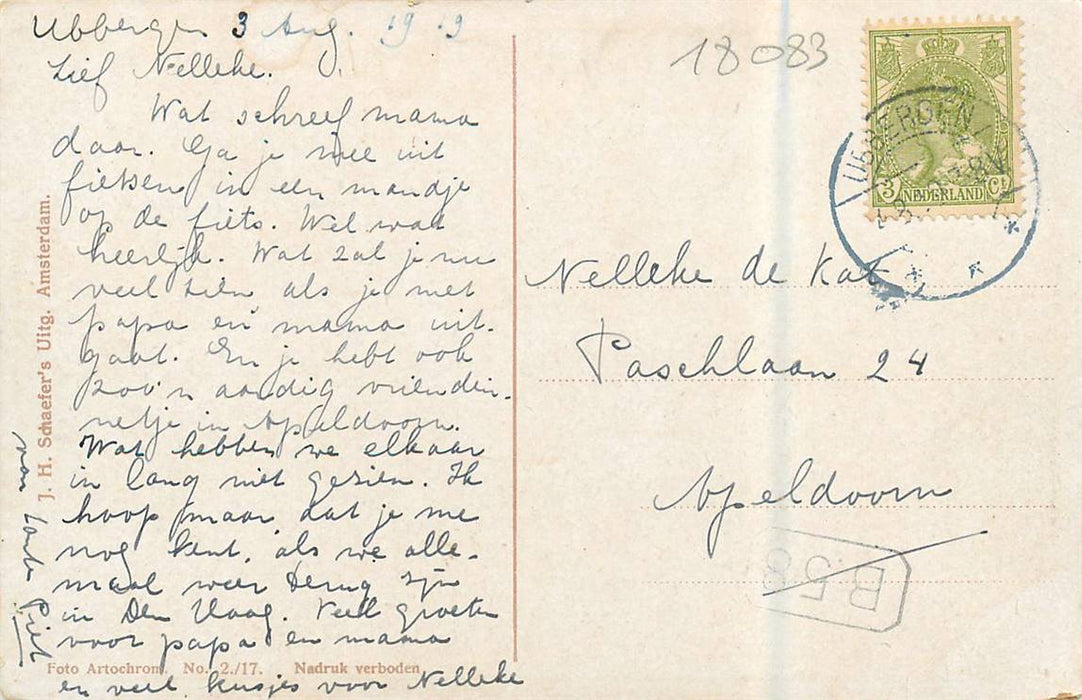 Ubbergen 3 Aug. 1919
Lief Nelleke.
Wat schreef mama
daar. Ga je mee uit
fietsen in een mandje
op de fiets. Wel wat
heerlijk. Wat zal je nu
veel zien als je met
papa en mama uit-
gaat. En je hebt ook
zoo'n aardig vriendin-
netje in Apeldoorn.
Wat hebben we elkaar
in lang niet gezien. Ik
hoop maar dat je me
nog kent, als we alle-
maal weer terug zijn
in Den Haag. Veel groeten
voor papa en mama
en veel kusjes voor Nelleke
van tante Piet
J. H. Schaefer's Uitg. Amsterdam.
Foto Artochrom. No. 2./17. Nadruk verboden.
18083
UBBERGEN
3 NEDERLAND Ct
Nelleke de Kat
Paschlaan 24
Apeldoorn
B.58